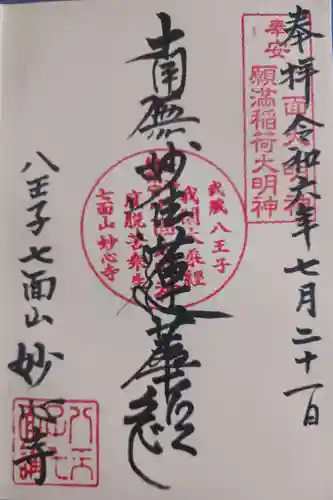 奉拝 令和六年七月二十一日
奉安
願満稲荷大明神
南無妙法蓮華経
武蔵 八王子
我聞大乗経
度脱苦衆生
七面山 妙心寺
八王子七面山 妙心寺